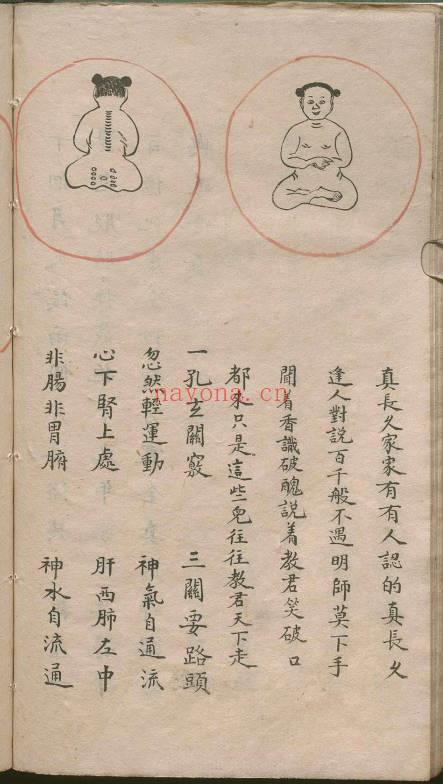 真長久家家有有人認的真長久
逢人對説百千般不遇明師莫下手
聞着香識破醜説着教君笑破口
都來只是這些皃往往教君天下走
一孔玄關竅　三關要路頭
忽然輕運動　神氣自通流
心下腎上處　肝西肺左中
非腸非胃腑　神水自流通
nayona.com